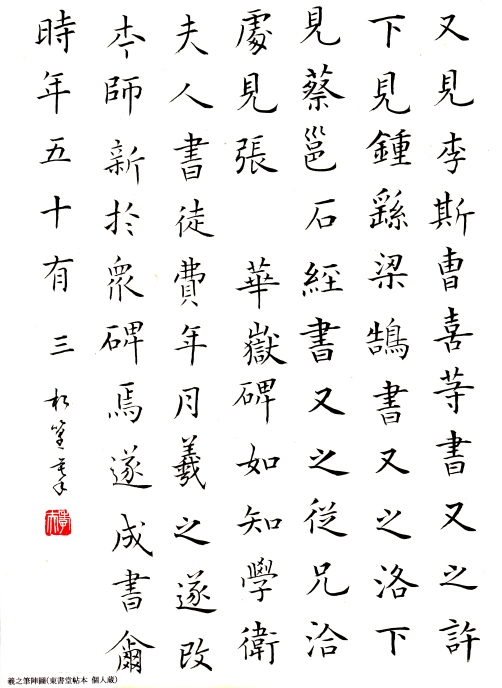 又見李斯曹喜等書又之許
下見鍾繇梁鵠書又之洛下
見蔡邕石經書又之從兄洽
處見張 華嶽碑如知學衛
夫人書徒費年月羲之遂改
夲師新於衆碑焉遂成書爾
時年五十有三
羲之筆陣圖(東書堂帖本 個人蔵)